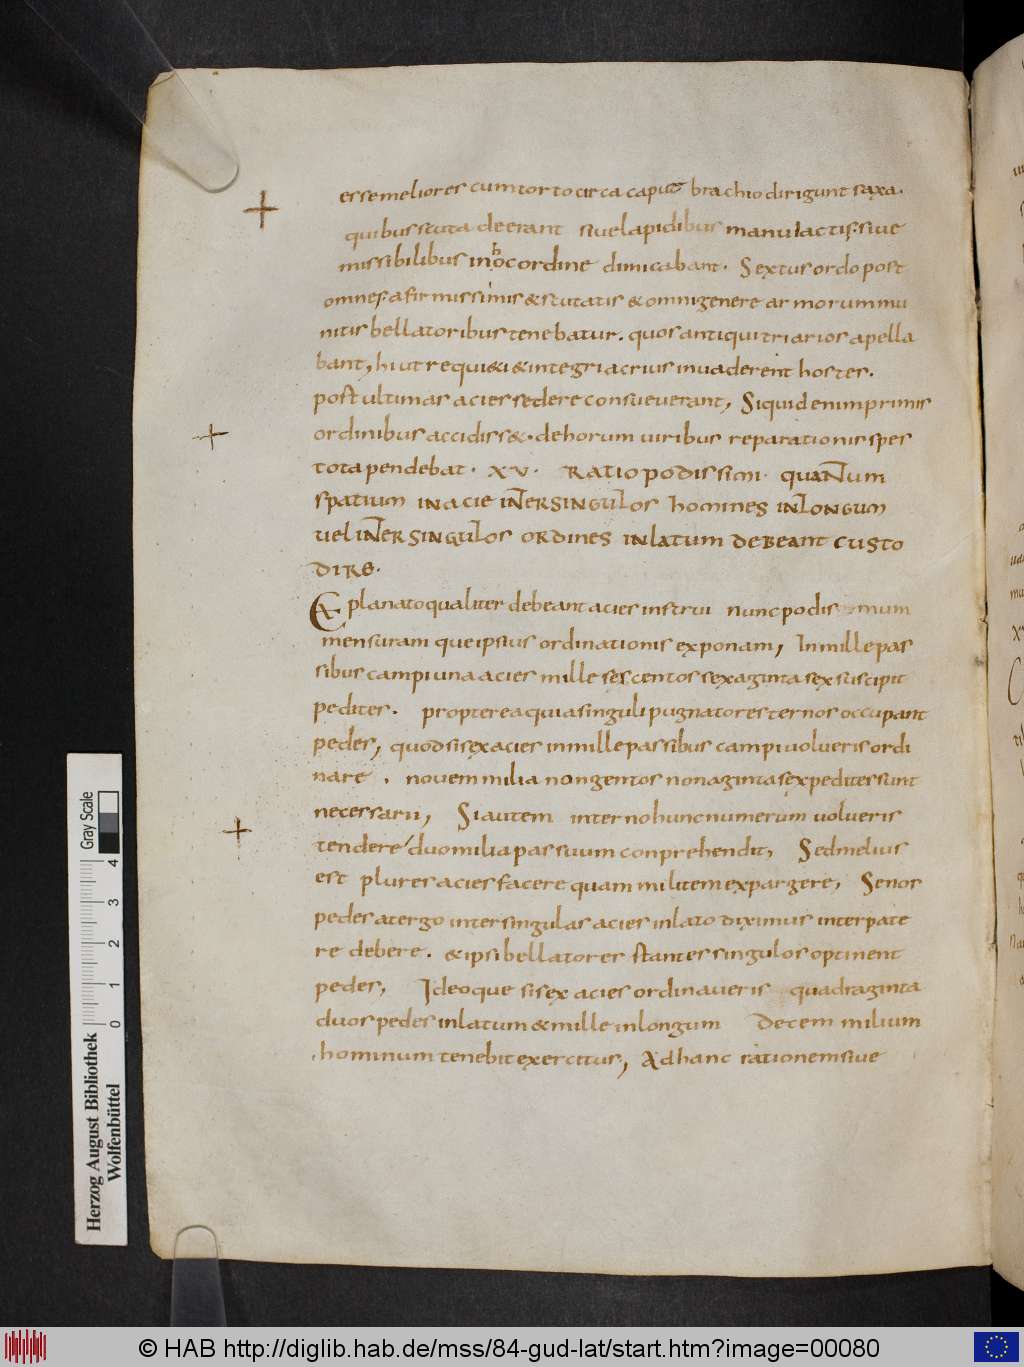 esse meliores cum torto circa caput brachio dirigunt saxa.
quibus scuta deerant siue lapidibus manu iactis. siue
missibilibus in hoc ordine dimicabant. Sextus ordo post
omnes. a firmissimis & scutatis & omni genere armorum mu
nitis bellatoribus tenebatur. quos antiqui triarios apella
bant, hi ut requi&i & integri acrius inuaderent hostes.
post ultimas acies sedere consueuerant, Si quid enim primis
ordinibus accidiss&. de horum uiribus reparationis spes
tota pendebat. XV. RATIO podissimi. quaNTum
spatium IN acie INTER SINGULOS homines IN LONGUM
uel INTER SINGULOS ORDINES IN LATUM DEBEANT CUSTO
DIRE.
Explanato qualiter debeant acies instrui nunc podis mum
mensuram que ipsius ordinationis exponam, In mille pas
sibus campi una acies mille sescentos sexaginta sex suscipit
pedites. propterea quia singuli pugnatores ternos occupant
pedes, quod si sex acies in mille passibus campi uolueris ordi
nare. nouem milia nongentos nonaginta sex pedites sunt
necessarii, Si autem in terno hunc numerum uolueris
tendere duo milia passuum conprehendit, Sed melius
est plures acies facere quam militem expargere, Senos
pedes a tergo inter singulas acies in lato diximus interpate
re debere. & ipsi bellatores stantes singulos optinent
pedes, Ideoque si sex acies ordinaueris quadraginta
duos pedes in latum & mille in longum Decem milium
hominum tenebit exercitus, Ad hanc rationem siue
Gray Scale
0 1 2 3 4
Herzog August Bibliothek
Wolfenbüttel
© HAB http://diglib.hab.de/mss/84-gud-lat/start.htm?image=00080